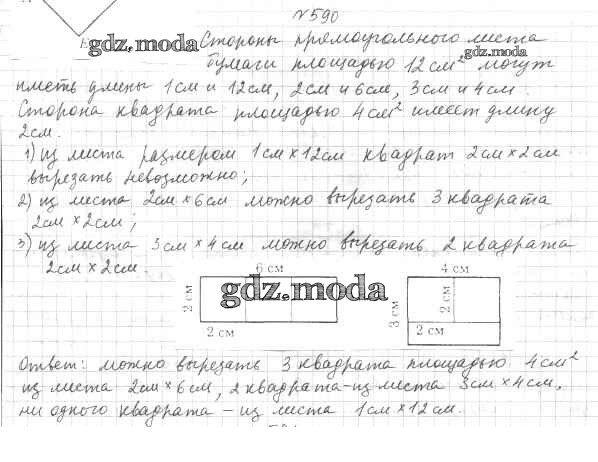 №590
Стороны прямоугольного листа
бумаги площадью 12 см² могут
иметь длины 1 см и 12 см, 2 см и 6 см, 3 см и 4 см.
Сторона квадрата площадью 4 см² имеет длину
2 см.
1) из листа размером 1 см × 12 см квадрат 2 см × 2 см
вырезать невозможно;
2) из листа 2 см × 6 см можно вырезать 3 квадрата
2 см × 2 см;
3) из листа 3 см × 4 см можно вырезать 2 квадрата
2 см × 2 см.
6 см
2 см
2 см
4 см
3 см
2 см
2 см
Ответ: можно вырезать 3 квадрата площадью 4 см²
из листа 2 см × 6 см, 2 квадрата - из листа 3 см × 4 см,
ни одного квадрата – из листа 1 см × 12 см.
gdz.moda
gdz.moda
gdz.moda